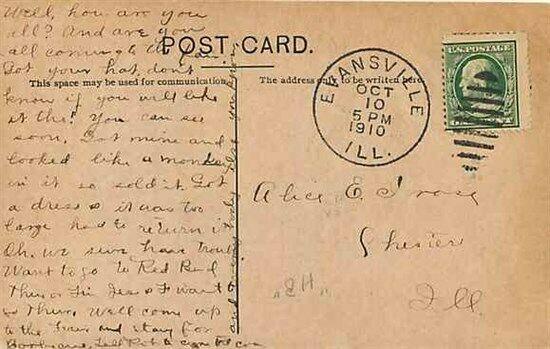 Well, how are you
all? And are you
all coming to the Fair.
Got your hat, don't
know if you will like
it tho! You can see
soon. Got mine and
looked like a monkey
in it so sold it. Got
a dress & it was too
large had to return it
Oh, we sure have trouble
Want to go to Red Bud
Thurs or Fri Jess & I want
Thurs. We'll come up
to the Fair and stay for
POST CARD.
This space may be used for communication.
The address only to be written here
EVANSVILLE
OCT
10
5 PM
1910
ILL.
U.S. POSTAGE
Alice E
Chester
Ill.